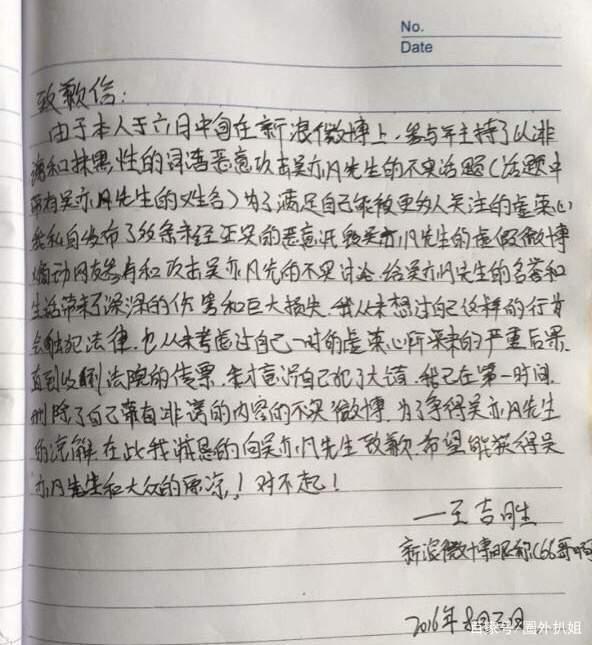 No.
Date
致歉信：
由于本人于六月中旬在新浪微博上，参与并主持了以诽
谤和抹黑性的词语恶意攻击吴亦凡先生的不实话题（话题中
带有吴亦凡先生的姓名）为了满足自己能被更多人关注的虚荣心
我私自发布了数条未经证实的恶意诋毁吴亦凡先生的虚假微博
煽动网友参与和攻击吴亦凡先生的不实讨论。给吴亦凡先生的名誉和
生活带来了深深的伤害和巨大损失。我从未想过自己这样的行为
会触犯法律，也从未考虑过自己一时的虚荣心所带来的严重后果，
直到收到法院的传票，我才意识自己犯了大错，我已在第一时间，
删除了自己带有诽谤的内容的不实微博，为了争得吴亦凡先生
的凉解在此我诚恳的向吴亦凡先生致歉，希望能获得吴
亦凡先生和大众的原凉！对不起！
—王吉胜
新浪微博昵称(66哥啊
2016年8月2日
百家号/圈外扒姐